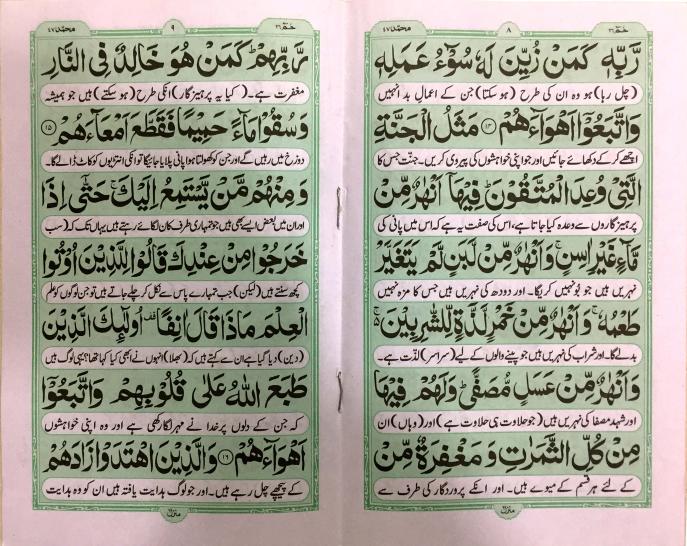 حٰمٓ ٢٦
٨
محمّد ٤٧
رَّبِّهٖ كَمَنْ زُيِّنَ لَهٗ سُوْٓءُ عَمَلِهٖ
(چل رہا) ہو وہ ان کی طرح (ہو سکتا) جن کے اعمالِ بد انہیں
وَاتَّبَعُوْٓا اَهْوَآءَهُمْ ﴿١٤﴾ مَثَلُ الْجَنَّةِ
اچھے کر کے دکھائے جائیں اور جو اپنی خواہشوں کی پیروی کریں۔ جنّت جس کا
الَّتِيْ وُعِدَ الْمُتَّقُوْنَ ؕ فِيْهَآ اَنْهٰرٌ مِّنْ
پرہیزگاروں سے وعدہ کیا جاتا ہے، اس کی صفت یہ ہے کہ اس میں پانی کی
مَّآءٍ غَيْرِ اٰسِنٍ ۚ وَاَنْهٰرٌ مِّنْ لَّبَنٍ لَّمْ يَتَغَيَّرْ
نہریں ہیں جو بُو نہیں کریگا۔ اور دودھ کی نہریں ہیں جس کا مزہ نہیں
طَعْمُهٗ ۚ وَاَنْهٰرٌ مِّنْ خَمْرٍ لَّذَّةٍ لِّلشّٰرِبِيْنَ ۚ۬
بدلے گا۔ اور شراب کی نہریں ہیں جو پینے والوں کے لیے (سراسر) لذّت ہے۔
وَاَنْهٰرٌ مِّنْ عَسَلٍ مُّصَفًّى ؕ وَلَهُمْ فِيْهَا
اور شہد مصفا کی نہریں ہیں (جو حلاوت ہی حلاوت ہے) اور (وہاں) ان
مِنْ كُلِّ الثَّمَرٰتِ وَمَغْفِرَةٌ مِّنْ
کے لئے ہر قسم کے میوے ہیں۔ اور انکے پروردگار کی طرف سے
منزل
حٰمٓ ٢٦
٩
محمّد ٤٧
رَّبِّهِمْ ؕ كَمَنْ هُوَ خَالِدٌ فِي النَّارِ
مغفرت ہے۔ (کیا یہ پرہیزگار) انکی طرح (ہو سکتے) ہیں جو ہمیشہ
وَسُقُوْا مَآءً حَمِيْمًا فَقَطَّعَ اَمْعَآءَهُمْ ﴿١٥﴾
دوزخ میں رہیں گے اور جن کو کھولتا ہوا پانی پلایا جائیگا تو انکی انتڑیوں کو کاٹ ڈالے گا۔
وَمِنْهُمْ مَّنْ يَّسْتَمِعُ اِلَيْكَ ۚ حَتّٰٓى اِذَا
اور ان میں بعض ایسے بھی ہیں جو تمہاری طرف کان لگائے رہتے ہیں یہاں تک کہ (سب
خَرَجُوْا مِنْ عِنْدِكَ قَالُوْا لِلَّذِيْنَ اُوْتُوا
کچھ سنتے ہیں (لیکن) جب تمہارے پاس سے نکل کر چلے جاتے ہیں تو جن لوگوں کو علم
الْعِلْمَ مَاذَا قَالَ اٰنِفًا ۫ اُولٰٓئِكَ الَّذِيْنَ
(دین) دیا گیا ہے ان سے کہتے ہیں کہ (بھلا) انہوں نے ابھی کیا کہا تھا؟ یہی لوگ ہیں
طَبَعَ اللّٰهُ عَلٰى قُلُوْبِهِمْ وَاتَّبَعُوْٓا
کہ جن کے دلوں پر خدا نے مہر لگا رکھی ہے اور وہ اپنی خواہشوں
اَهْوَآءَهُمْ ﴿١٦﴾ وَالَّذِيْنَ اهْتَدَوْا زَادَهُمْ
کے پیچھے چل رہے ہیں۔ اور جو لوگ ہدایت یافتہ ہیں ان کو وہ ہدایت
منزل